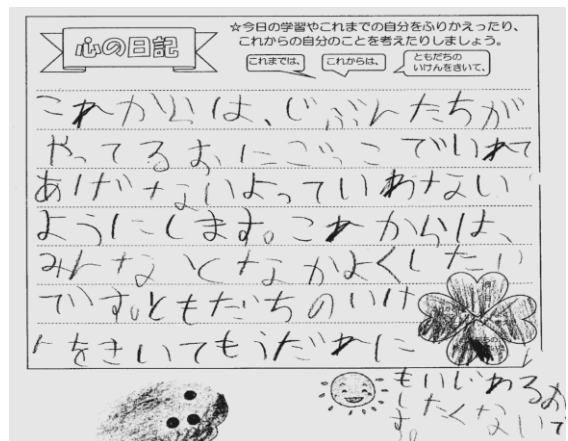 心の日記
☆今日の学習やこれまでの自分をふりかえったり、
これからの自分のことを考えたりしましょう。
これまでは、
これからは、
ともだちの
いけんをきいて、
これからは、じぶんたちが
やってるおにごっこでいれて
あげなないよっていわない
ようにします。これからは、
みんなとなかよくしたい
です。ともだちのいけ
んをきいてもうだれに
もいじわるお
したくないで
す。